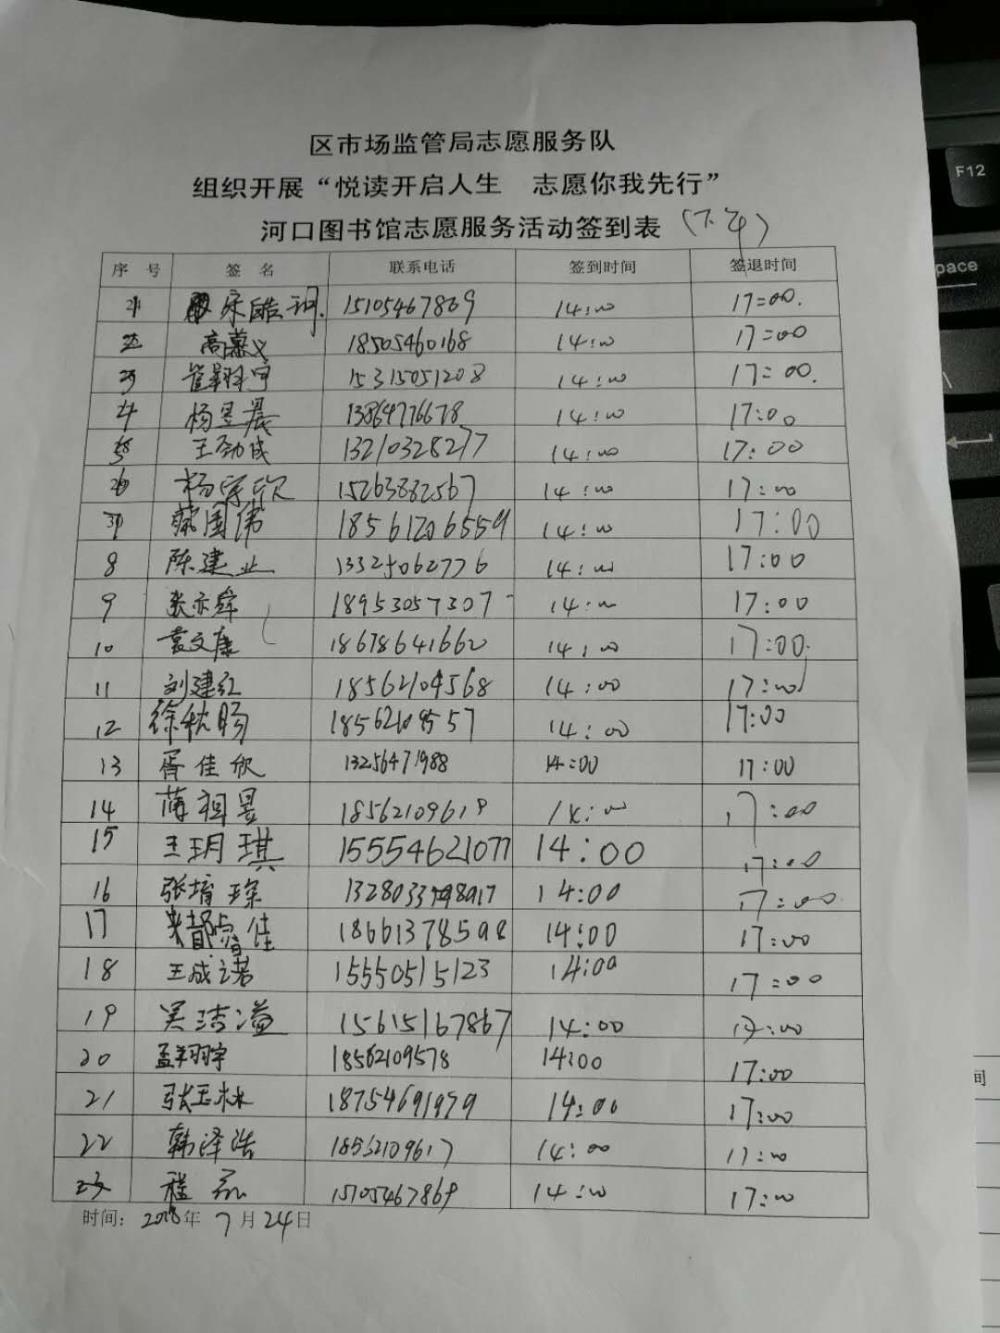 区市场监管局志愿服务队
组织开展“悦读开启人生 志愿你我先行”
河口图书馆志愿服务活动签到表(下午)
序 号 签 名 联系电话 签到时间 签退时间
15105467869 14:00 17:00.
高慕义 18505460168 14:00 17:00
崔翔宇 15315051208 14:00 17:00.
4 杨昱晨 13864776678 14:00 17:00
王劲成 13210328277 14:00 17:00
杨宗欣 15263882567 14:00 17:00
蔡国伟 18561206559 14:00 17:00
8 陈建业 13325062776 14:00 17:00
9 张亦舜 18953057307 14:00 17:00
10 袁文康 18678641660 14:00 17:00.
11 刘建红 18562104568 14:00 17:00
12 徐秋肠 17:00 14:00
13 胥佳欣 13256471988 14:00 17:00
14 蒋祖昱 18562109619 14:00 17:00
15 王玥琪 15554621077 14:00 17:00
16 张培琛 14:00 17:00
17 佳 18661378598 14:00 17:00
18 王成诺 15550515123 14:00 17:00
19 吴洁溢 15615167867 14:00 17:00
20 孟翔宇 18562109578 14:00 17:00
21 张玉林 18754691979 14:00 17:00
22 韩泽浩 18562109617 14:00 17:00
23 程 15105467869 14:00 17:00
时间: 2018年 7月24日
F12
pace
间